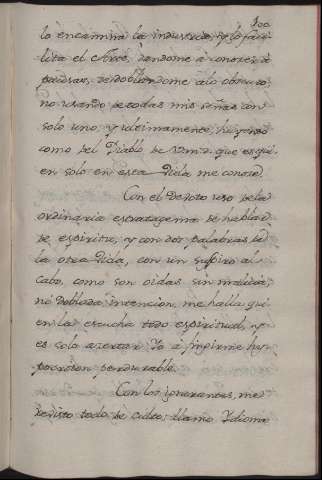 100
lo encamina la industria, y lo faci-
lita el Arte, dandome à conocer à
pausas, desdoblandome alo obscuro,
no usando de todas mis señas con
solo uno, y ultimamente, huyendo
como del Diablo de Vmd. que es qui-
en solo en esta Vida me conoce.
Con el Devoto uso dela
ordinaria estratagema de hablar
de espiritu, y con dos palabras de
la otra Vida, con un suspiro al
cabo, como son oidas sin malicia,
ni doblada intencion, me halla qui-
en las escucha todo espiritual, y
es solo acertar Yo à fingirme hy-
pocriton perdurable.
Con los ignorantes, me
revisto todo de culto: llamo Ydioma